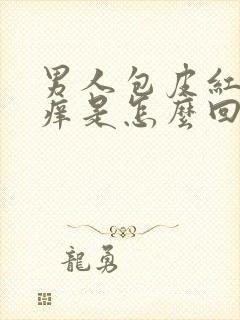 男人包皮紅
痒是怎麼回
龍勇